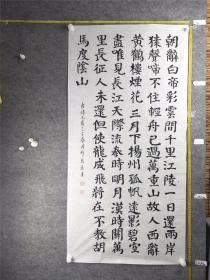 朝辭白帝彩雲間千里江陵一日還兩岸
猿聲啼不住輕舟已過萬重山故人西辭
黃鶴樓煙花三月下揚州孤帆遠影碧空
盡唯見長江天際流秦時明月漢時關萬
里長征人未還但使龍城飛將在不教胡
馬度陰山
古詩三首